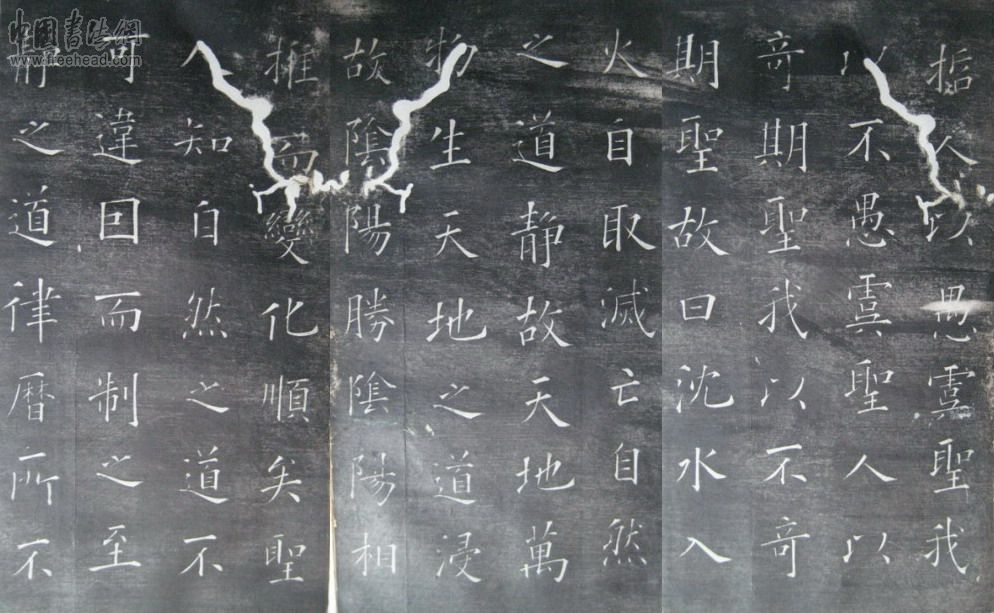 哲人以愚虞聖我
以不愚虞聖人以
竒期聖我以不竒
期聖故曰沈水入
火自取滅亡自然
之道静故天地萬
物生天地之道浸
故陰陽勝陰陽相
推而變化順矣聖
人知自然之道不
可違因而制之至
静之道律曆所不
中国書法網
www.freehead.com